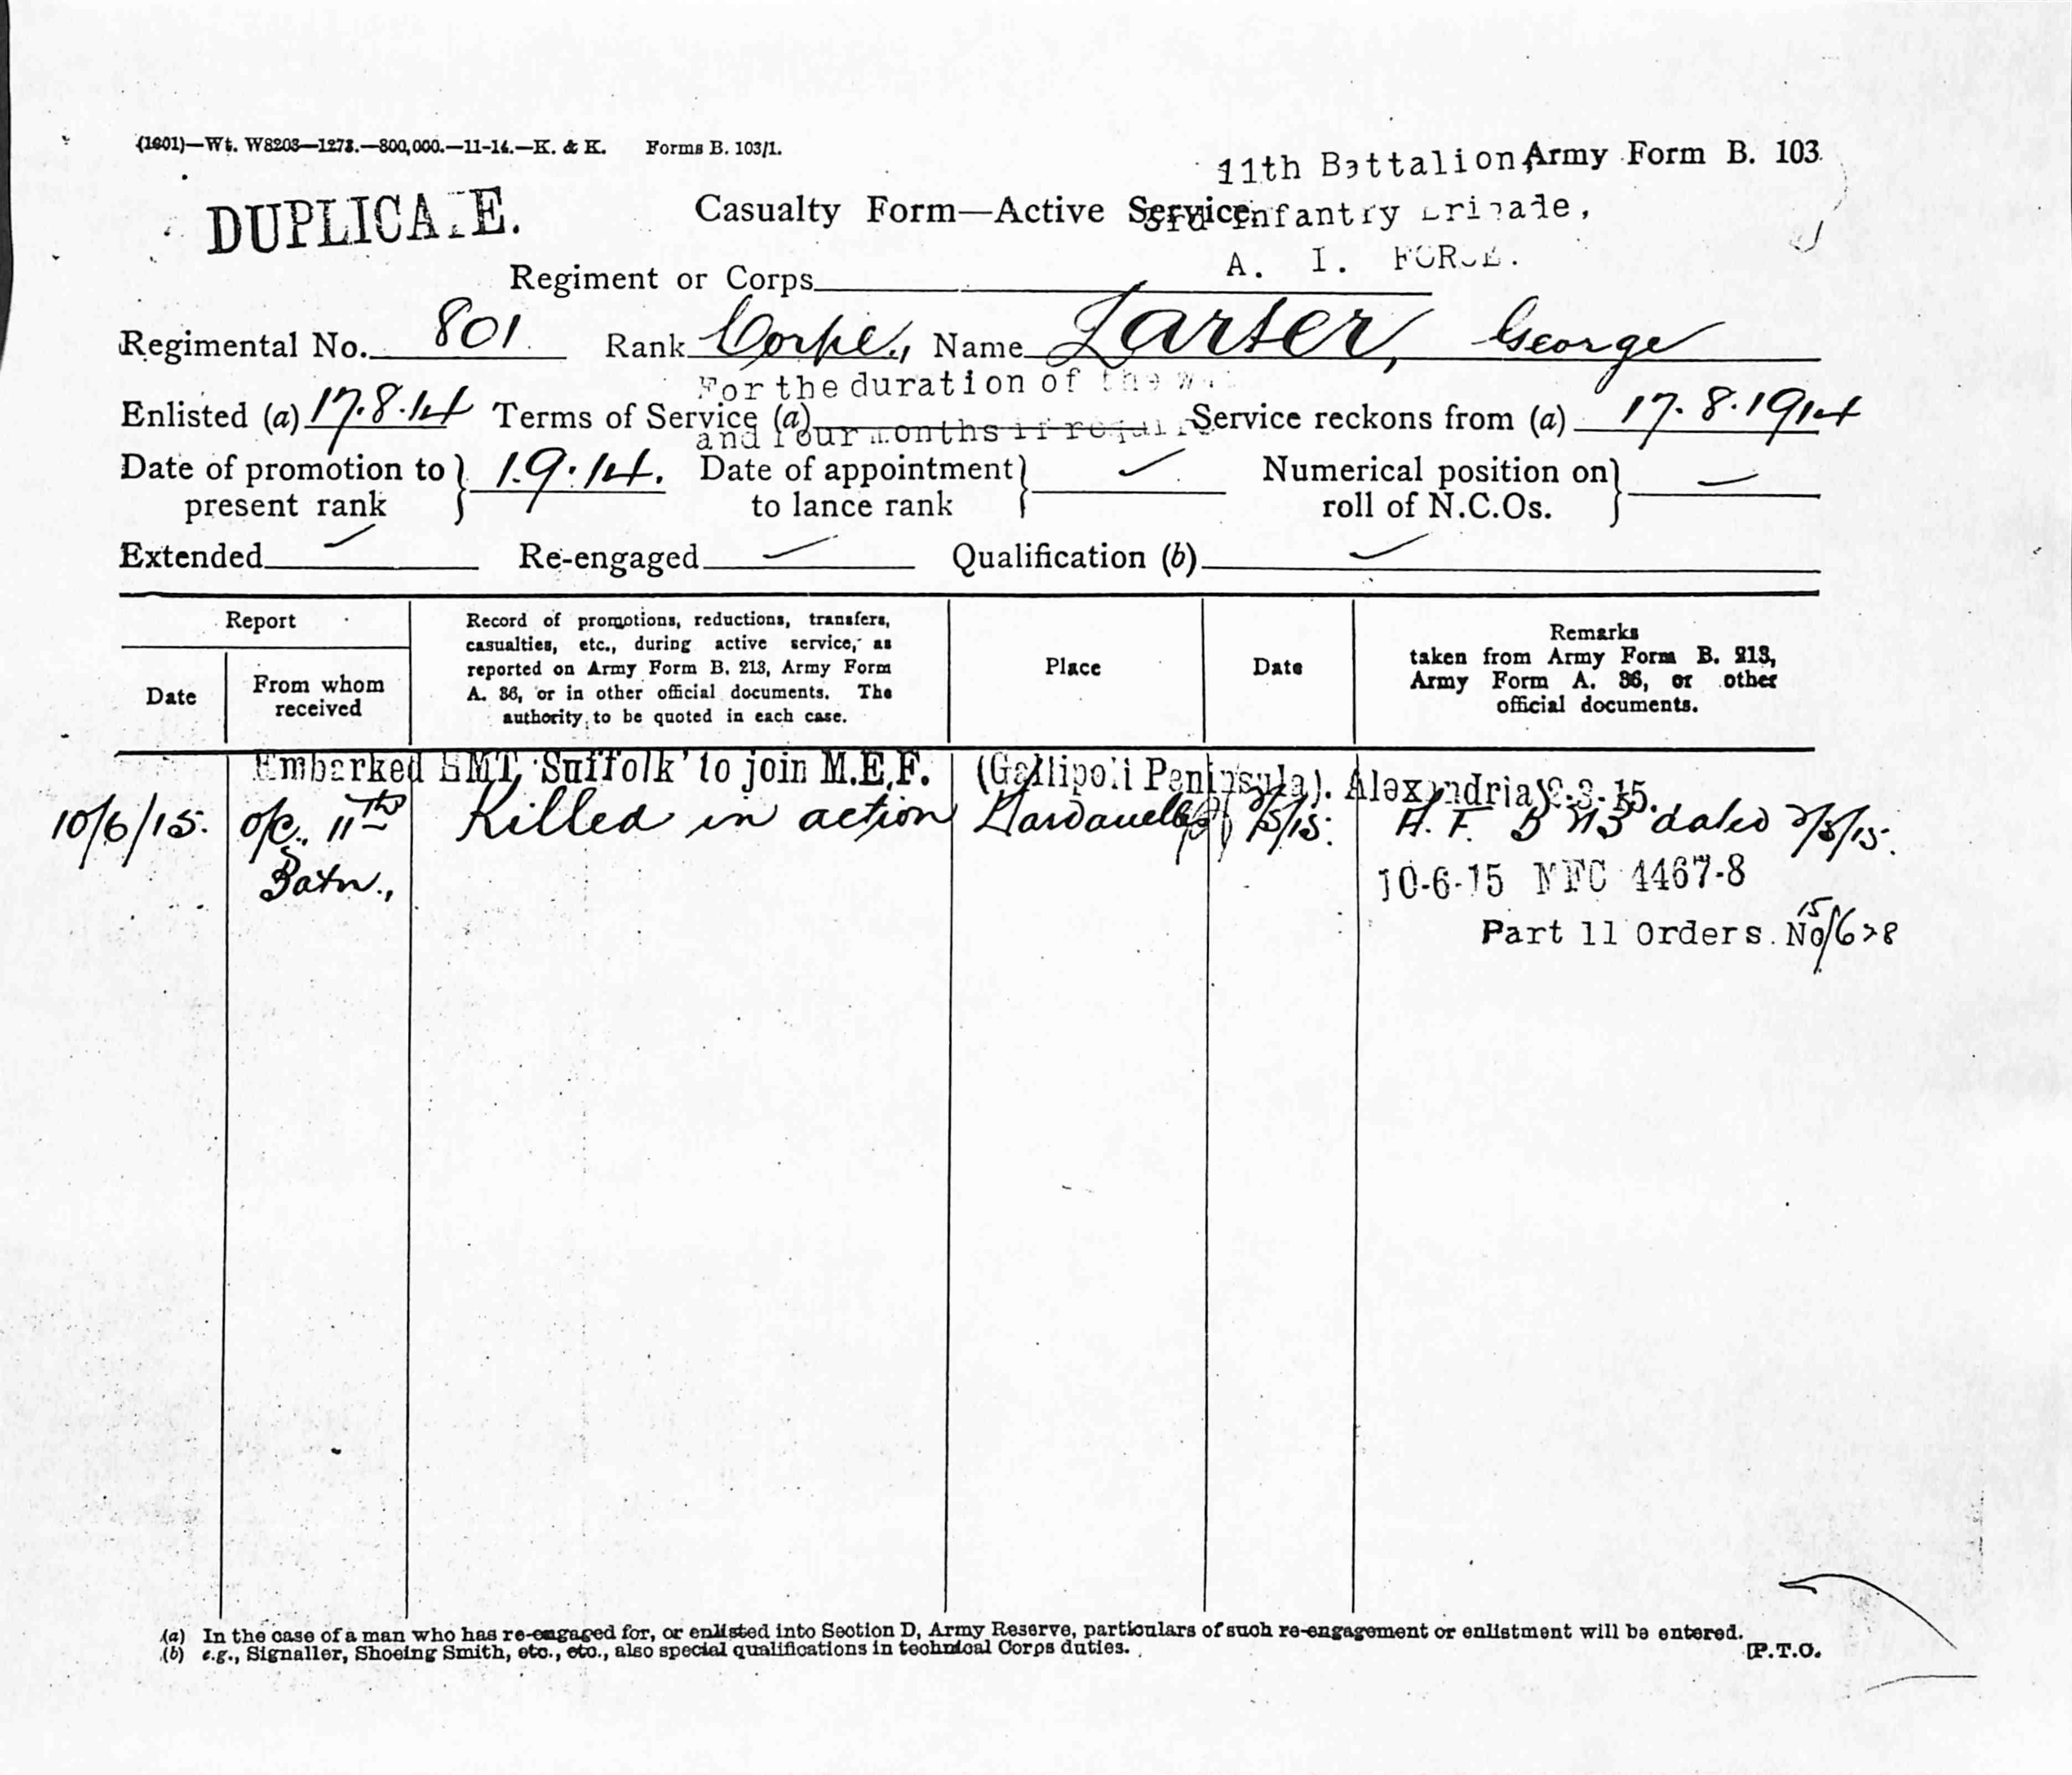 (1601)—Wt. W8203—1273.—800,000.—11-14.—K. & K. Forms B. 103/1.
11th Battalion, Army Form B. 103.
DUPLICATE.
Casualty Form—Active Service.
3rd Infantry Brigade,
A. I. FORCE.
Regiment or Corps
Regimental No. 801. Rank Corpl., Name Larser, George
For the duration of the
Enlisted (a) 17.8.14 Terms of Service (a) Service reckons from (a) 17.8.1914
and four months if
Date of promotion to present rank } 1.9.14. Date of appointment to lance rank } Numerical position on roll of N.C.Os. }
Extended Re-engaged Qualification (b)
Report
Date
From whom received
Record of promotions, reductions, transfers,
casualties, etc., during active service, as
reported on Army Form B. 213, Army Form
A. 36, or in other official documents. The
authority to be quoted in each case.
Place
Date
Remarks
taken from Army Form B. 213,
Army Form A. 36, or other
official documents.
Embarked HMT 'Suffolk' to join M.E.F. (Gallipoli Peninsula). Alexandria 2-3-15.
10/6/15. o/c., 11th Killed in action Dardanelles /5/15. A. F. B 213 dated /5/15.
Batn.,
10-6-15 4467-8
Part 11 Orders. No
(a) In the case of a man who has re-engaged for, or enlisted into Section D, Army Reserve, particulars of such re-engagement or enlistment will be entered.
(b) e.g., Signaller, Shoeing Smith, etc., etc., also special qualifications in technical Corps duties.
[P.T.O.